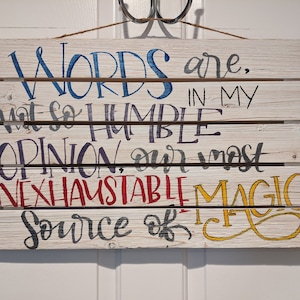 WORDS are,
IN MY
not so HUMBLE
OPINION, our most
INEXHAUSTABLE MAGIC
Source of